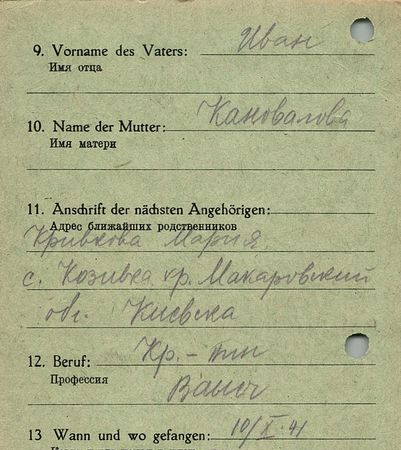 9. Vorname des Vaters: Иван
Имя отца
10. Name der Mutter: Кановалова
Имя матери
11. Anschrift der nächsten Angehörigen:
Адрес ближайших родственников
Кривкова Мария
с. Козивка кр. Макаровский
обл. Киевска
12. Beruf: Кр.-тин
Профессия
13 Wann und wo gefangen: 10/X.41